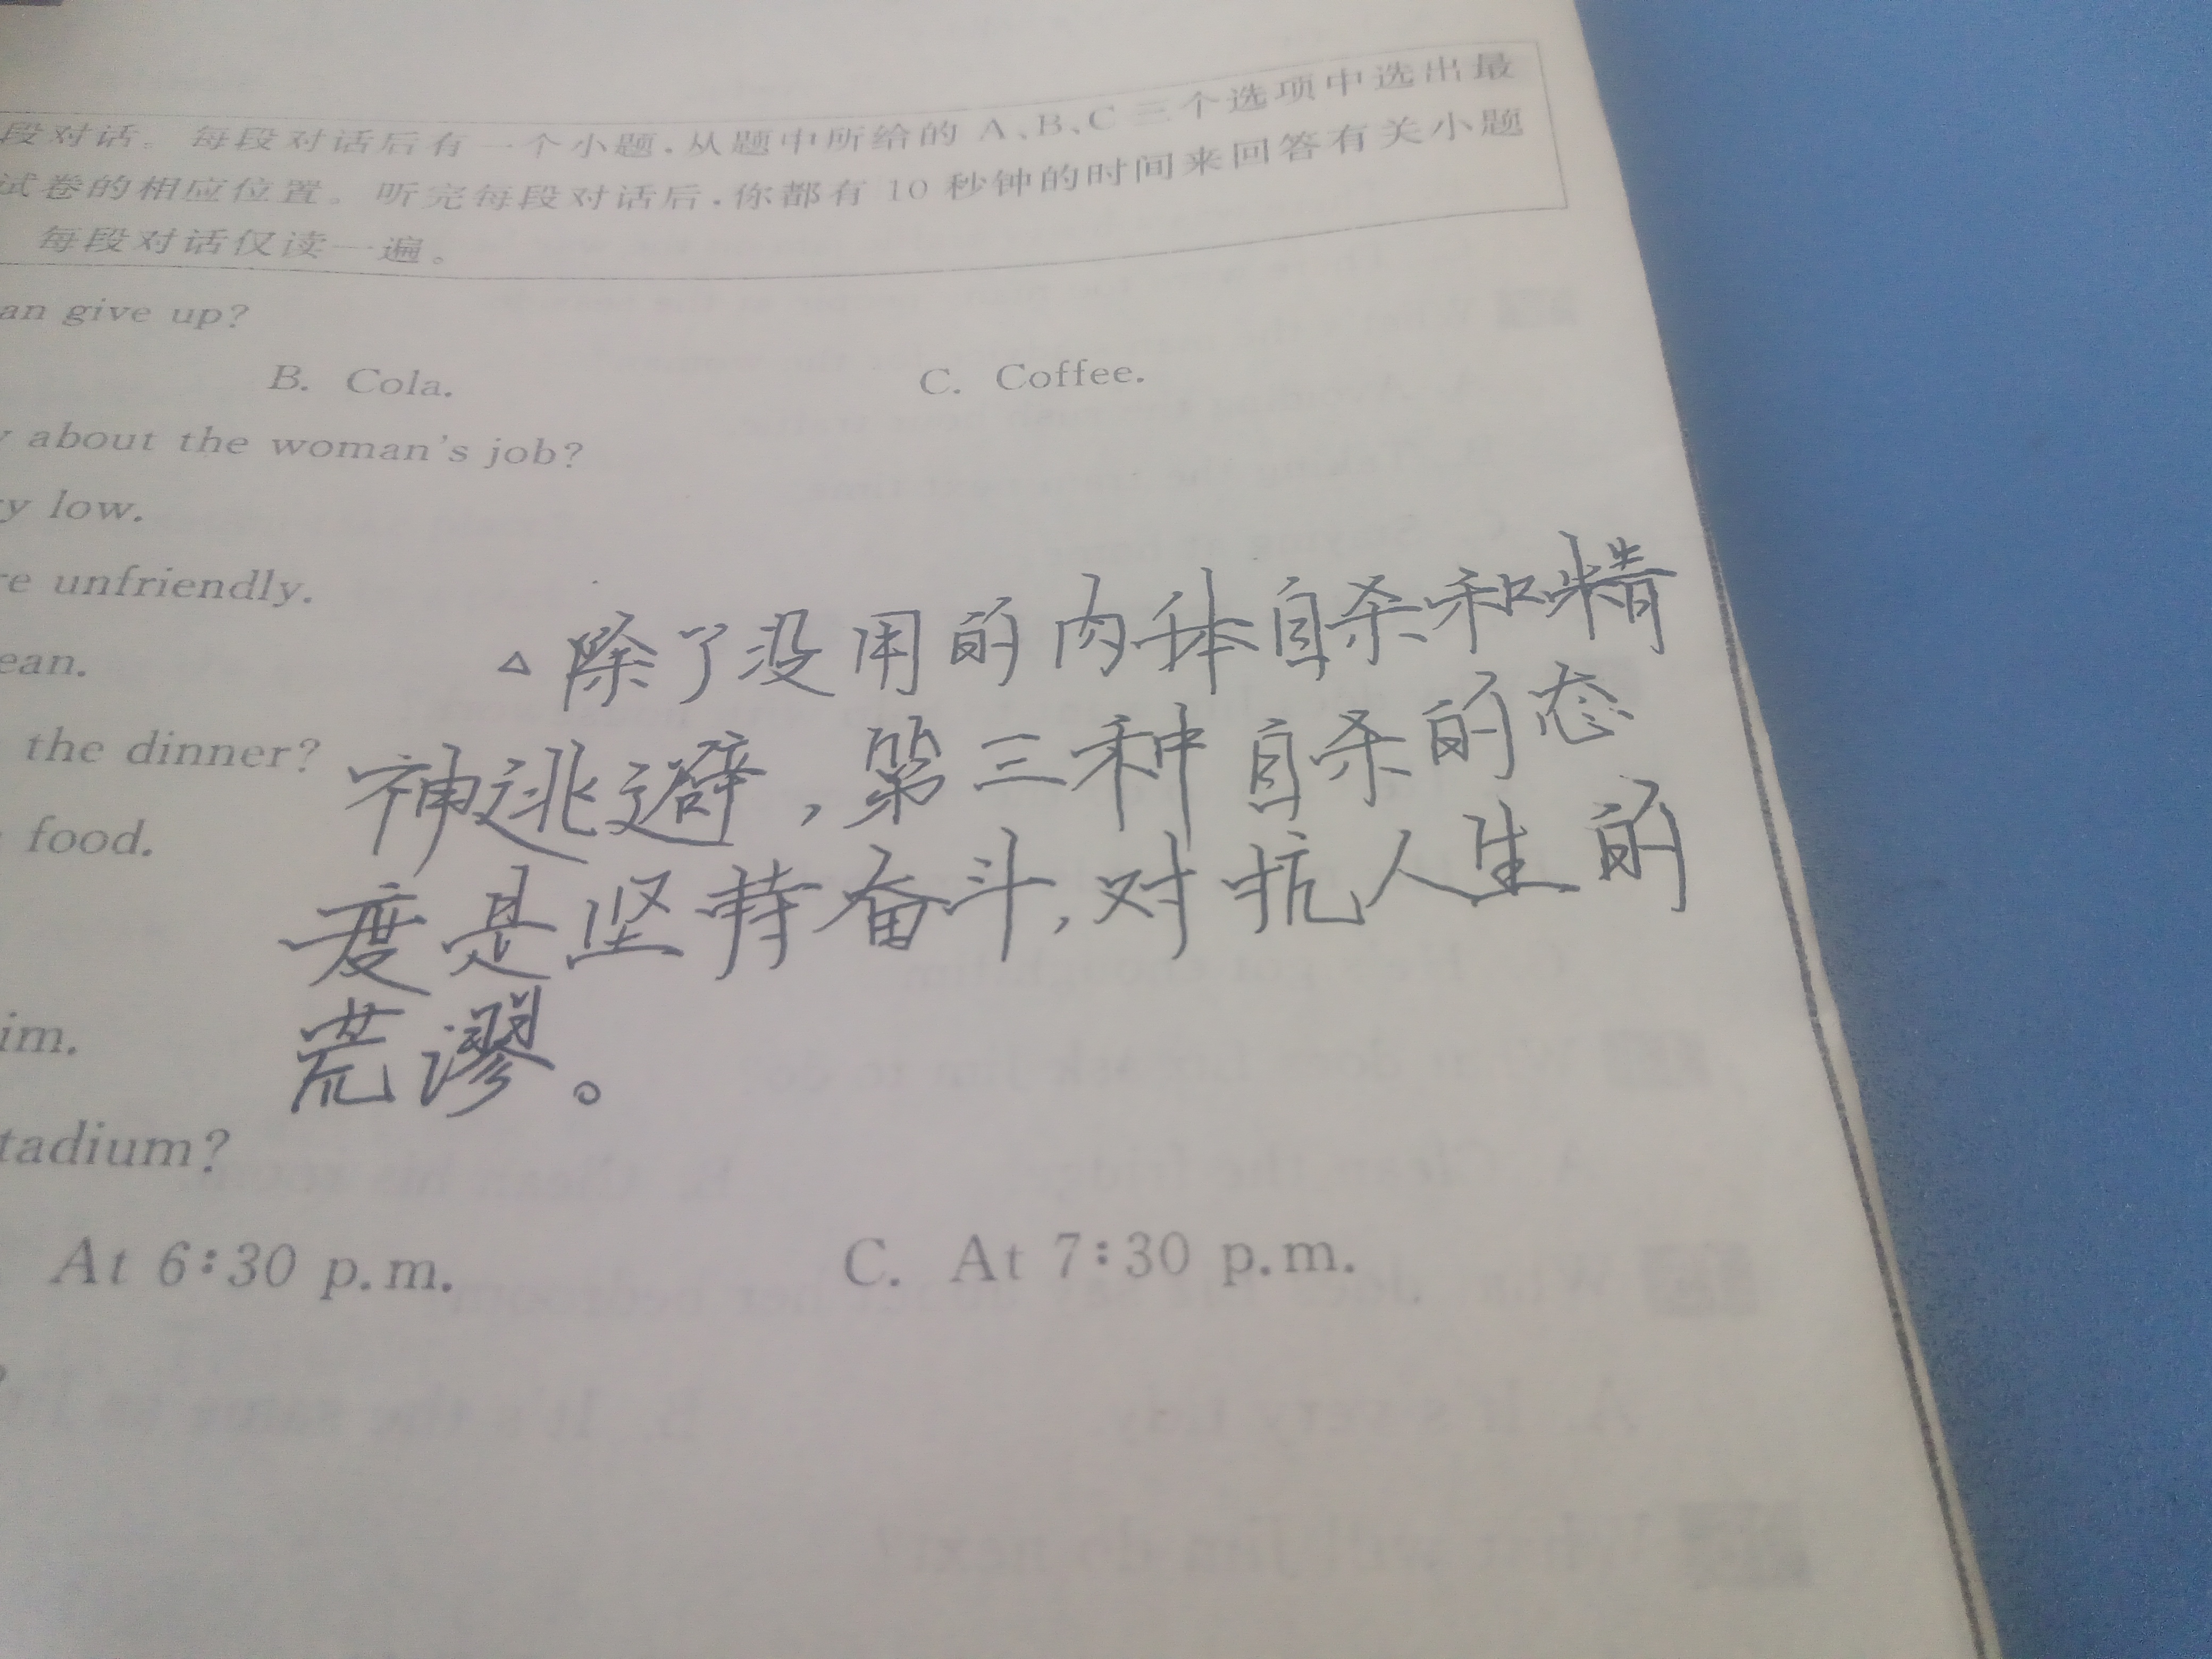 段对话。每段对话后有一个小题,从题中所给的 A、B、C 三个选项中选出最
试卷的相应位置。听完每段对话后,你都有 10 秒钟的时间来回答有关小题
每段对话仅读一遍。
an give up?
B. Cola. C. Coffee.
about the woman's job?
y low.
re unfriendly.
ean.
△除了没用的肉体自杀和精
the dinner?
神逃避,第三种自杀的态
food.
度是坚持奋斗,对抗人生的
im.
荒谬。
tadium?
At 6:30 p.m. C. At 7:30 p.m.